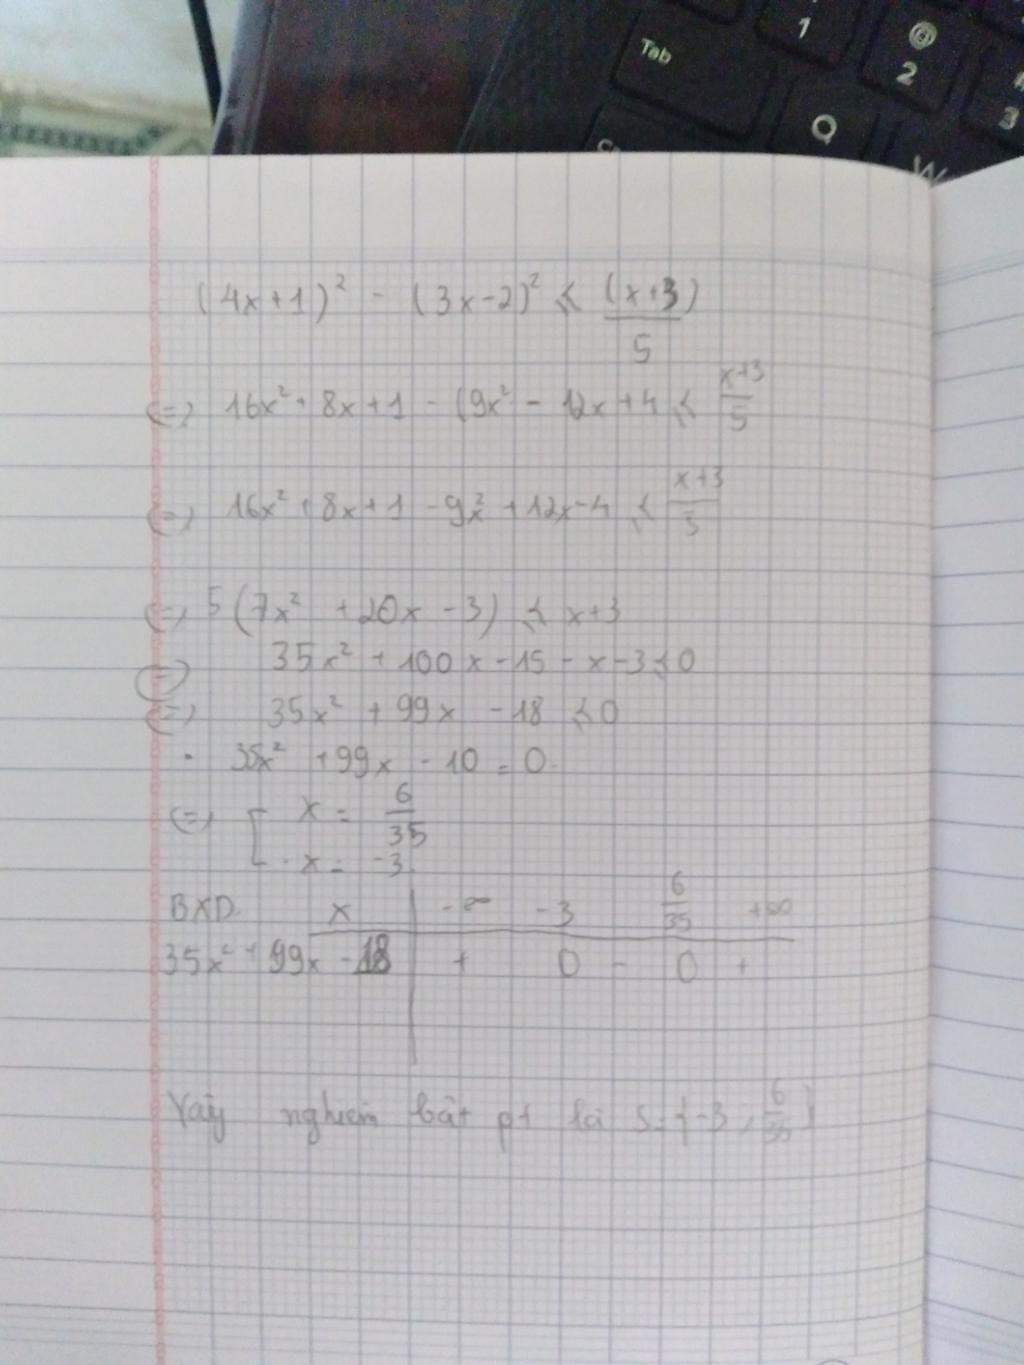 1
Tab
@
2
3
Q
W
(4x+1)² - (3x-2)² ≤ (x+3)/5
⇔ 16x² + 8x+1 - (9x² - 12x+4 ≤ x+3/5
⇔ 16x² + 8x+1 -9x² +12x-4 ≤ x+3/5
⇔ 5(7x² +20x -3) ≤ x+3
⇔ 35x² +100x -15 -x-3≤0
⇔ 35x² +99x -18 ≤0
· 35x² +99x -10 = 0
⇔ [ x = 6/35
x = -3
BXD x -∞ -3 6/35 +∞
35x² + 99x -18 + 0 - 0 +
Vậy nghiệm bất pt là S={-3; 6/35}